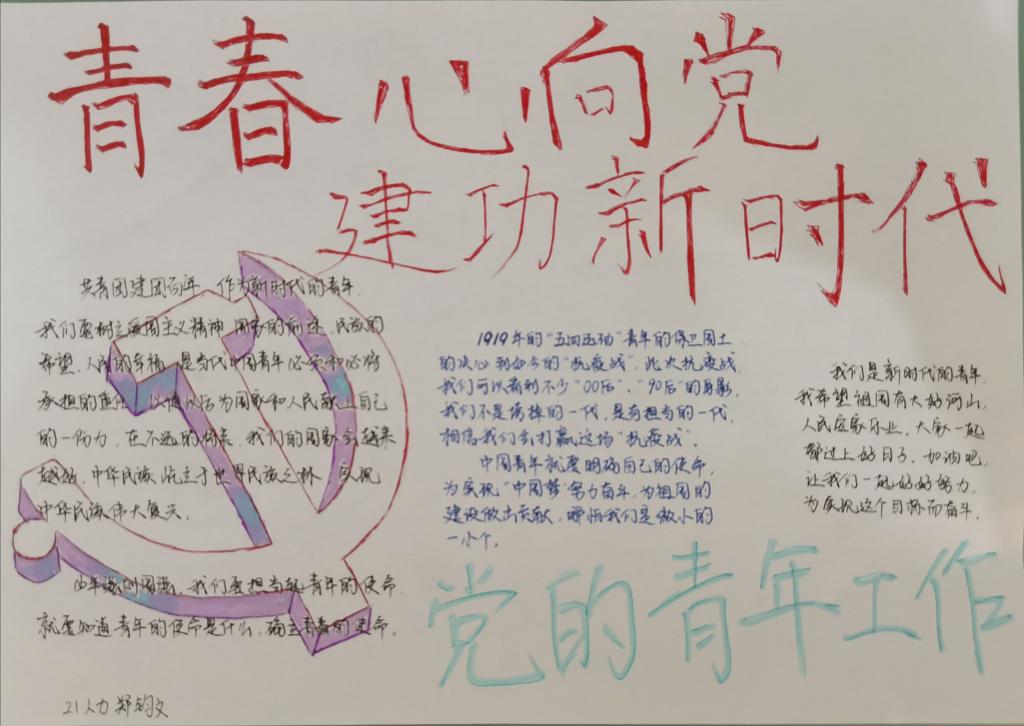 青春心向党
建功新时代
共青团建团百年，作为新时代的青年，
我们要树立爱国主义精神，国家的前途，民族的
希望，人民的幸福，是当代中国青年必须和必将
承担的重任。以恒以活为国家和人民献上自己
的一份力，在不远的将来，我们的国家会越来
越好，中华民族屹立于世界民族之林，实现
中华民族伟大复兴。
少年强则国强，我们要担当起青年的使命，
就要知道青年的使命是什么，确立青春的使命。
21人力 郑钧文
1919年的“五四运动”青年的保卫国土
的决心到如今的“抗疫战”，此次抗疫战，
我们可以看到不少“00后”、“90后”的身影，
我们不是垮掉的一代，是有担当的一代，
相信我们会打赢这场“抗疫战”。
中国青年就要明确自己的使命，
为实现“中国梦”努力奋斗，为祖国的
建设做出贡献，哪怕我们是微小的
一小个。
我们是新时代的青年，
我希望祖国有大好河山，
人民安家乐业，大家一起
都过上好日子，加油吧，
让我们一起好好努力，
为实现这个目标而奋斗。
党的青年工作